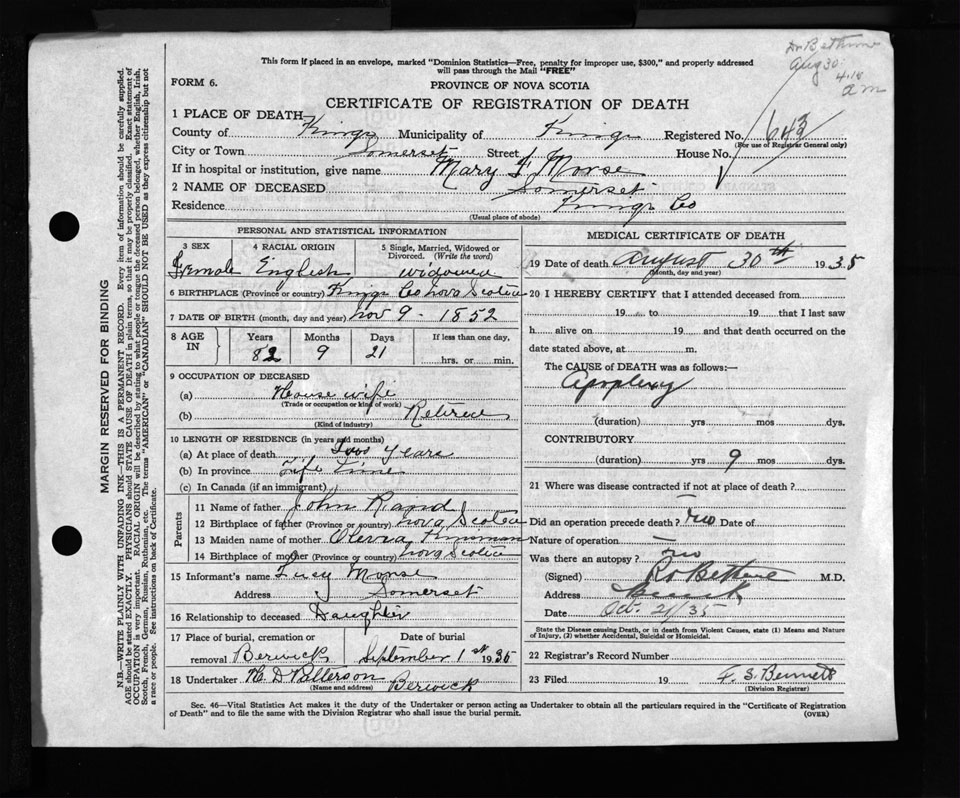 Aug 30
4.10
a m
This form if placed in an envelope, marked "Dominion Statistics—Free, penalty for improper use, $300," and properly addressed
will pass through the Mail "FREE"
FORM 6.
PROVINCE OF NOVA SCOTIA
CERTIFICATE OF REGISTRATION OF DEATH
1 PLACE OF DEATH
County of Kings Municipality of Kings Registered No. 643
(For use of Registrar General only)
City or Town Somerset Street House No.
If in hospital or institution, give name Mary F Morse
2 NAME OF DECEASED
Residence Somerset Kings Co
(Usual place of abode)
PERSONAL AND STATISTICAL INFORMATION
3 SEX 4 RACIAL ORIGIN 5 Single, Married, Widowed or Divorced. (Write the word)
Female English widowed
6 BIRTHPLACE (Province or country) Kings Co Nova Scotia
7 DATE OF BIRTH (month, day and year) Nov 9 - 1852
8 AGE IN Years Months Days If less than one day,
82 9 21 hrs. or min.
9 OCCUPATION OF DECEASED
(a) House wife
(Trade or occupation or kind of work)
(b) Retired
(Kind of industry)
10 LENGTH OF RESIDENCE (in years and months)
(a) At place of death Two years
(b) In province Life time
(c) In Canada (if an immigrant)
Parents
11 Name of father John Rand
12 Birthplace of father (Province or country) Nova Scotia
13 Maiden name of mother Kinsman
14 Birthplace of mother (Province or country) Nova Scotia
15 Informant's name Lucy Morse
Address Somerset
16 Relationship to deceased Daughter
17 Place of burial, cremation or removal Berwick Date of burial September 1st 1935
18 Undertaker H. D Patterson
(Name and address) Berwick
MEDICAL CERTIFICATE OF DEATH
19 Date of death August 30th 1935
(Month, day and year)
20 I HEREBY CERTIFY that I attended deceased from
19 to 19 that I last saw
h alive on 19 and that death occurred on
date stated above, at m.
The CAUSE of DEATH was as follows:—
Apoplexy
(duration) yrs mos dys.
CONTRIBUTORY
(duration) yrs 9 mos dys.
21 Where was disease contracted if not at place of death?
Did an operation precede death? no Date of
Nature of operation —
Was there an autopsy? no
(Signed) M.D.
Address Berwick
Date Oct. 21/35
State the Disease causing Death, or in death from Violent Causes, state (1) Means and Nature
of Injury, (2) whether Accidental, Suicidal or Homicidal.
22 Registrar's Record Number
23 Filed 19 Bennett
(Division Registrar)
Sec. 46—Vital Statistics Act makes it the duty of the Undertaker or person acting as Undertaker to obtain all the particulars required in the "Certificate of Registration
of Death" and to file the same with the Division Registrar who shall issue the burial permit.
(OVER)
MARGIN RESERVED FOR BINDING
N.B.—WRITE PLAINLY WITH UNFADING INK—THIS IS A PERMANENT RECORD. Every item of information should be carefully supplied.
AGE should be stated EXACTLY. PHYSICIANS should STATE CAUSE OF DEATH in plain terms, so that it may be properly classified. Exact statement of
OCCUPATION is very important. RACIAL ORIGIN will be described by stating to what people or tongue the deceased person belonged, whether English, Irish,
Scotch, French, German, Russian, Ruthenian, etc. The terms "AMERICAN" or "CANADIAN" SHOULD NOT BE USED as they express citizenship but not
a race or people. See instructions on back of Certificate.